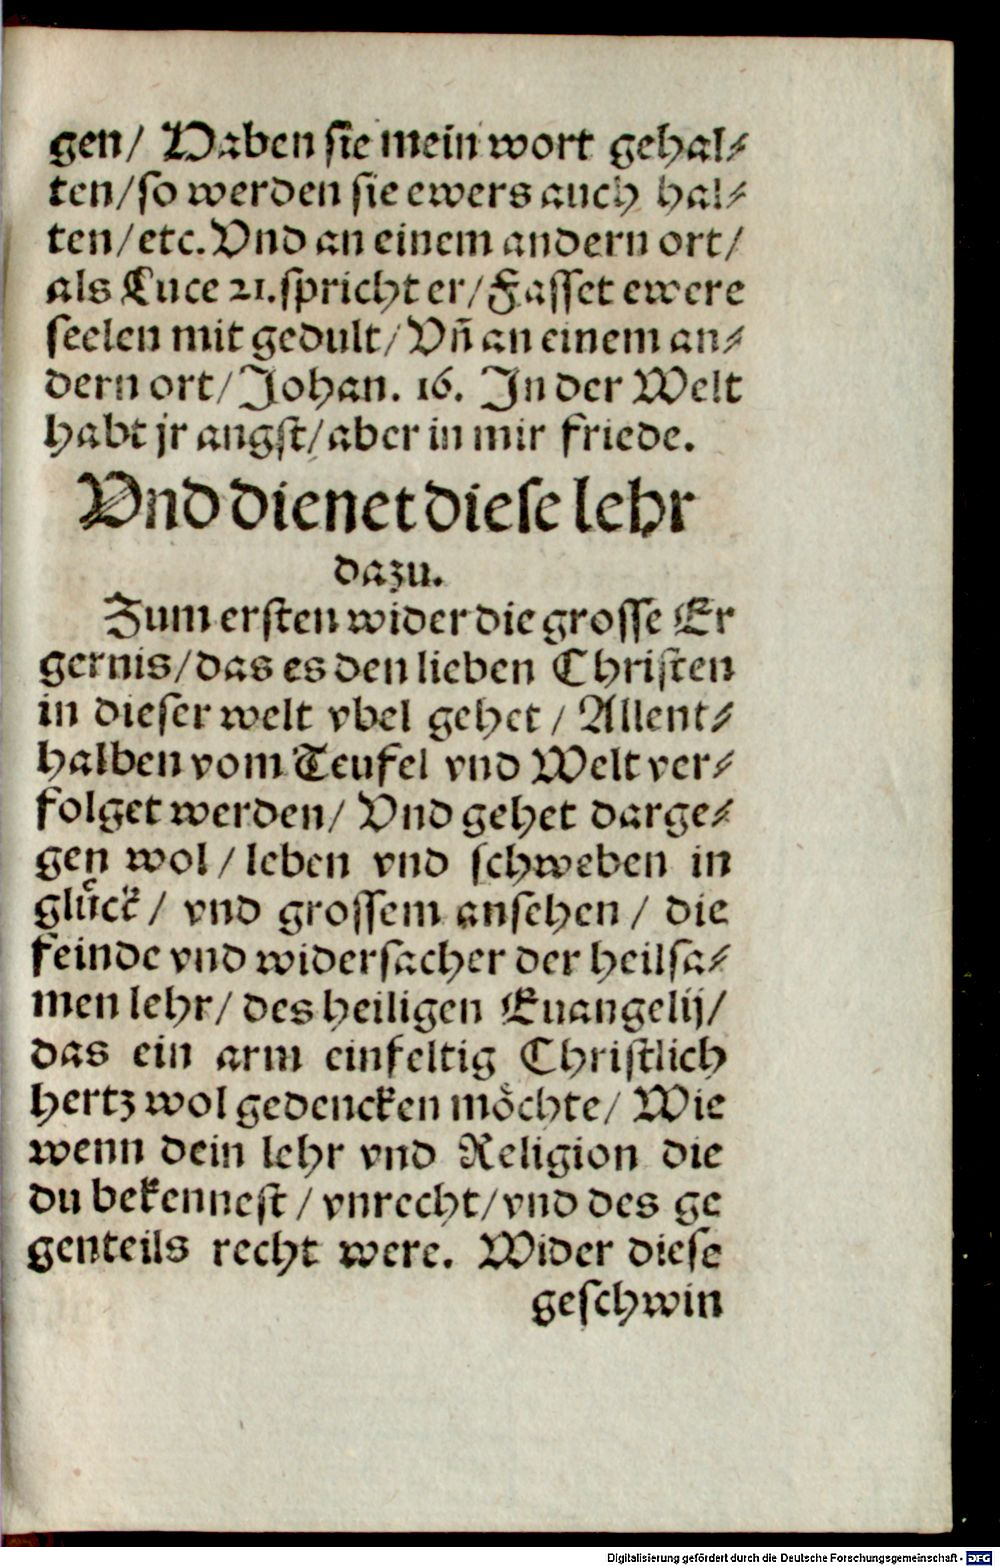 gen/ Haben sie mein wort gehal⸗
ten/so werden sie ewers auch hal⸗
ten/etc. Vnd an einem andern ort/
als Luce 21. spricht er/Fasset ewere
seelen mit gedult/ Vñ an einem an⸗
dern ort/ Johan. 16. In der Welt
habt jr angst/aber in mir friede.
Vnd dienet diese lehr
dazu.
Zum ersten wider die grosse Er
gernis/das es den lieben Christen
in dieser welt vbel gehet/ Allent⸗
halben vom Teufel vnd Welt ver⸗
folget werden/ Vnd gehet darge⸗
gen wol/ leben vnd schweben in
glůck/ vnd grossem ansehen/ die
feinde vnd widersacher der heilsa⸗
men lehr/ des heiligen Euangelij/
das ein arm einfeltig Christlich
hertz wol gedencken moͤchte/ Wie
wenn dein lehr vnd Religion die
du bekennest/ vnrecht/vnd des ge
genteils recht were. Wider diese
geschwin
Digitalisierung gefördert durch die Deutsche Forschungsgemeinschaft - DFG